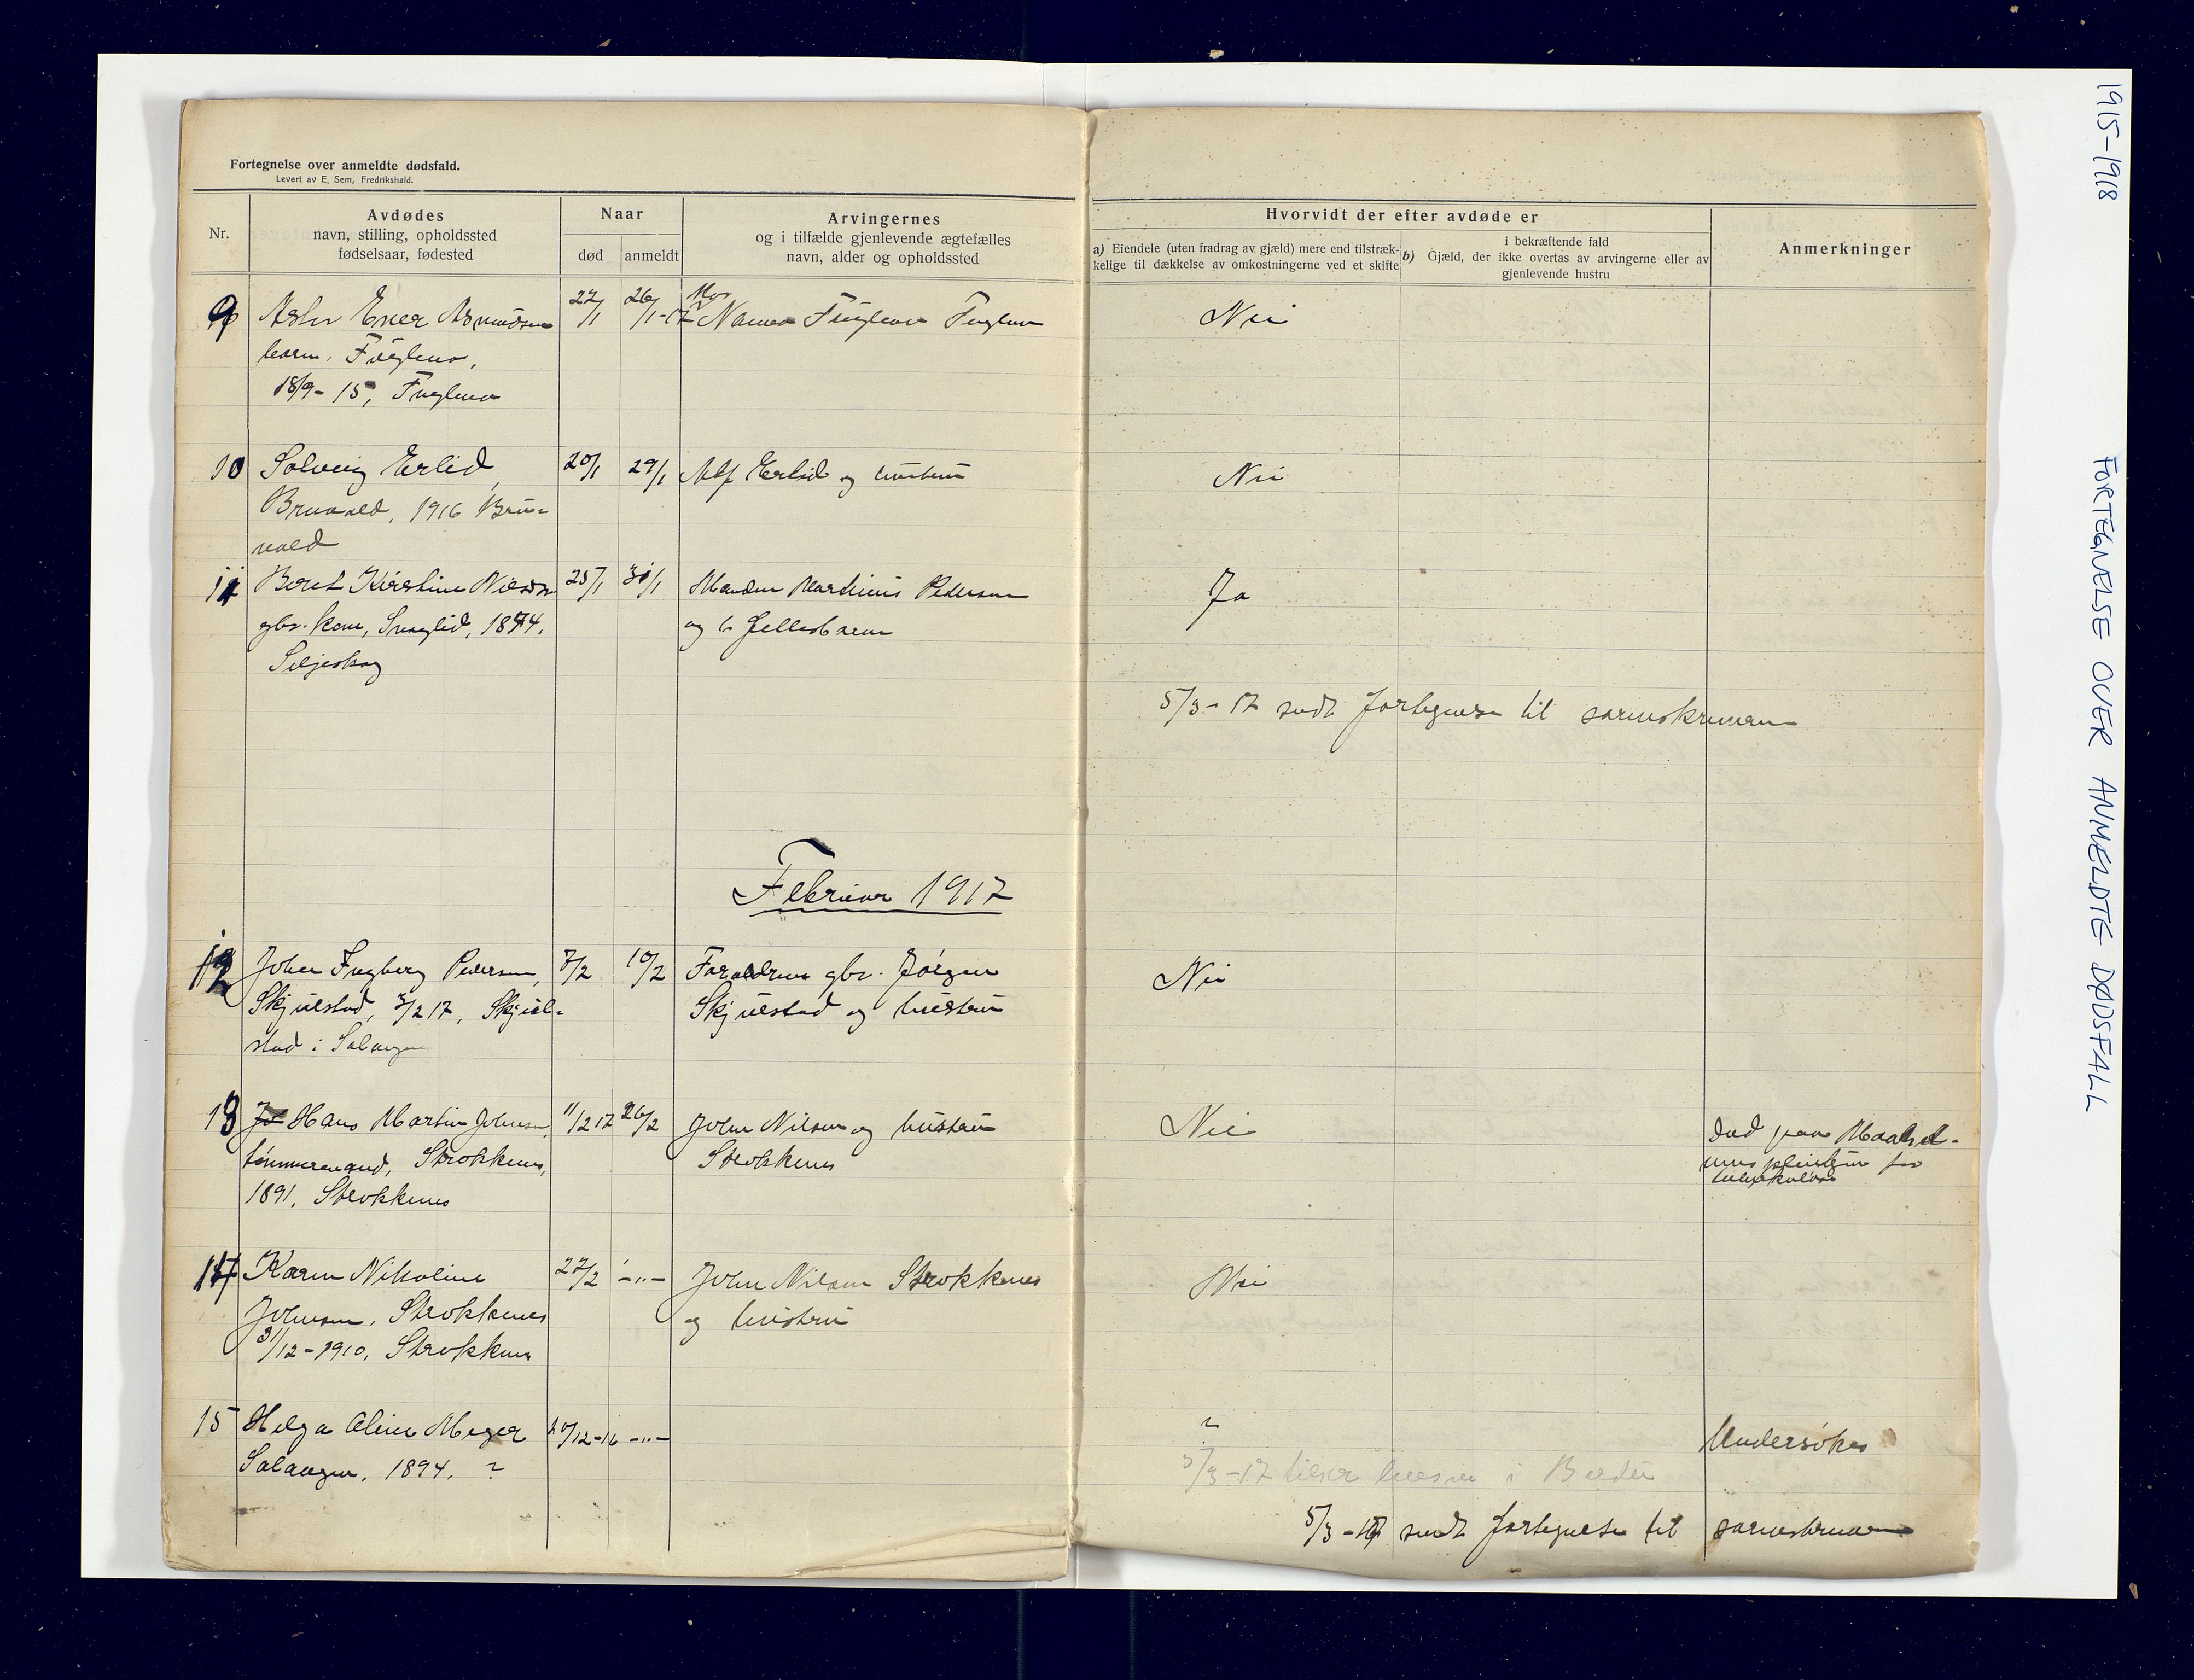 Fortegnelse over anmeldte dødsfald.
Levert av E. Sem, Fredrikshald.
Nr.
Avdødes
navn, stilling, opholdssted
fødselsaar, fødested
Naar
død
anmeldt
Arvingernes
og i tilfælde gjenlevende ægtefælles
navn, alder og opholdssted
Hvorvidt der efter avdøde er
a) Eiendele (uten fradrag av gjæld) mere end tilstræk-
kelige til dækkelse av omkostningerne ved et skifte
i bekræftende fald
b) Gjæld, der ikke overtas av arvingerne eller av
gjenlevende hustru
Anmerkninger
9 Asmundsen 22/1 26/1-17 Mor Fuglmo Nei
barn, Fuglmo,
18/9-15, Fuglmo
10 Solveig Erlid, 20/1 29/1 Alf Erlid og hustru Nei
Bruvold, 1916 Bru-
vold
11 Beret Kirstine 25/1 31/1 Manden Martinus Pedersen Ja
gbr. kone, 1874, og 6 fellesbarn
Seljeskog
5/3-17 sendt fortegnelse til sorenskriveren
Februar 1917
12 Johan Ingberg Pedersen, 7/2 10/2 Forældrene gbr. Jørgen Nei
Skjelstad, 3/2 17, Skjel- Skjelstad og hustru
stad i Salangen
13 Hans Martin Johnsen, 11/2 17 26/2 John Nilsen og hustru Nei Død paa Maalsel-
tømmermand, Strokkenes, Strokkenes
1891, Strokkenes tuberkuløse
14 Karen Nikoline 22/2 -"- John Nilsen Strokkenes Nei
Johnsen, Strokkenes og hustru
31/12-1910, Strokkenes
15 Helga Oline Meyer 20/12-16 -"- ? Undersøkes
Salangen, 1894. ?
5/3-17
5/3-17 sendt fortegnelse til sorenskriveren
1915-1918
FORTEGNELSE OVER ANMELDTE DØDSFALL